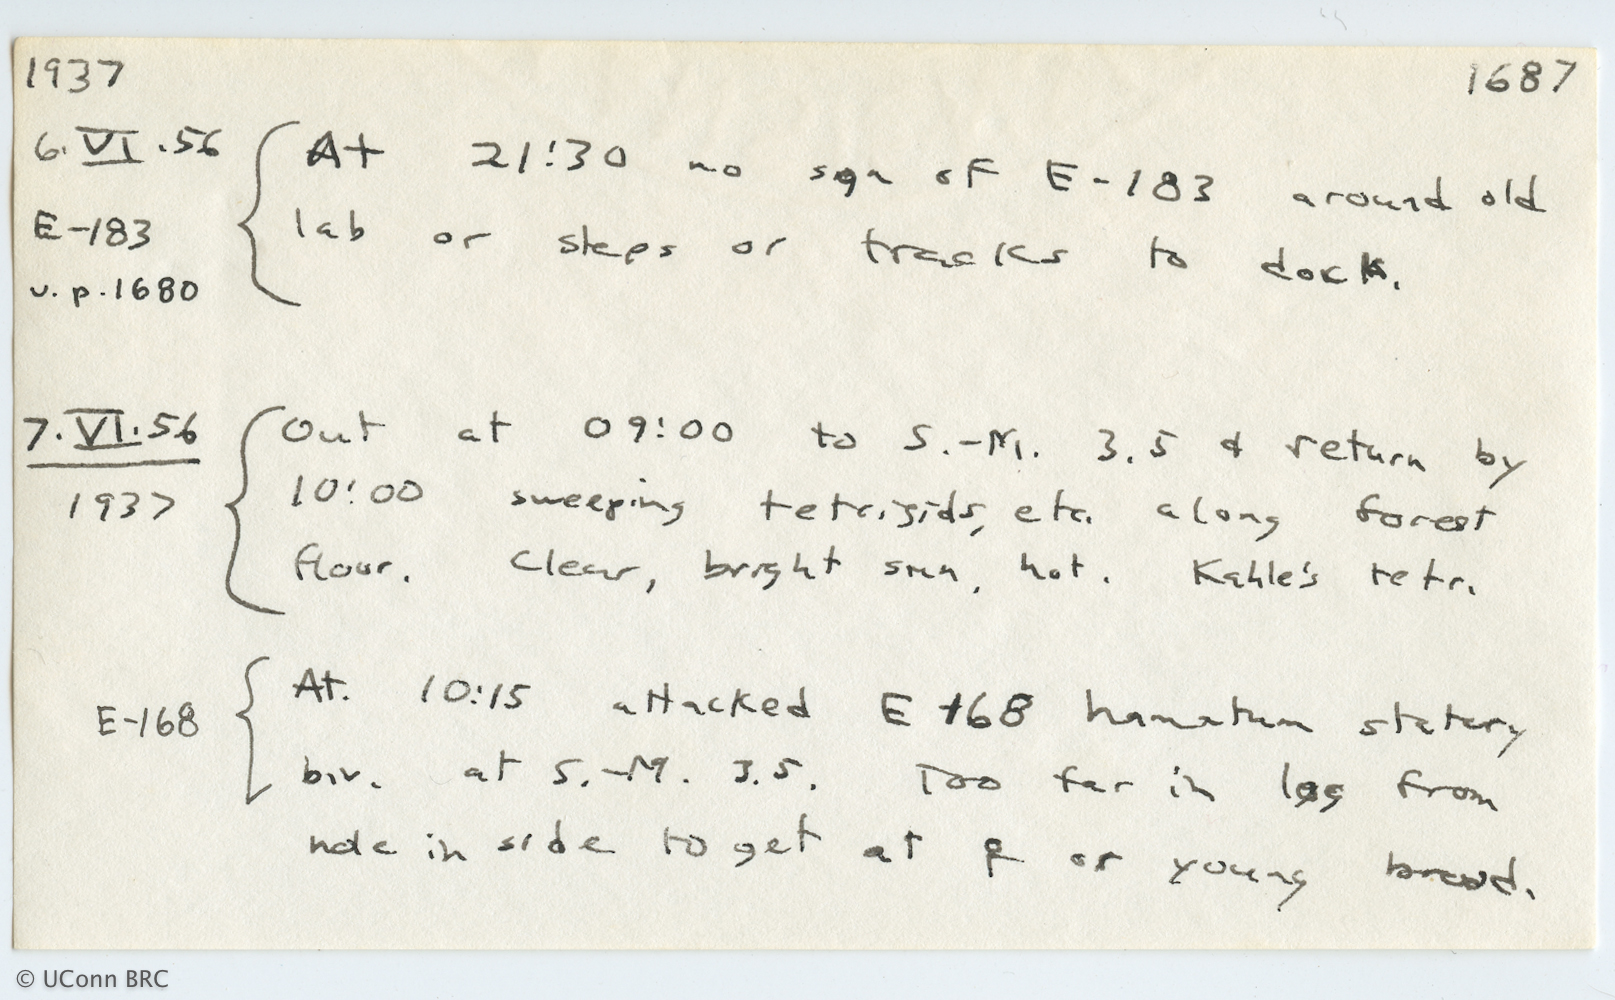 1937 1687
6.VI.56 At 21:30 no sign of E-183 around old
E-183 lab or steps or tracks to dock.
v.p.1680
7.VI.56 Out at 09:00 to S.-M. 3.5 & return by
1937 10:00 sweeping tetrigids, etc. along forest
floor. Clear, bright sun, hot. Kahle's tetr.
At. 10:15 attacked E-168 hamatum statary
E-168 biv. at S.-M. 3.5. Too far in log from
hole in side to get at or young brood.
© UConn BRC